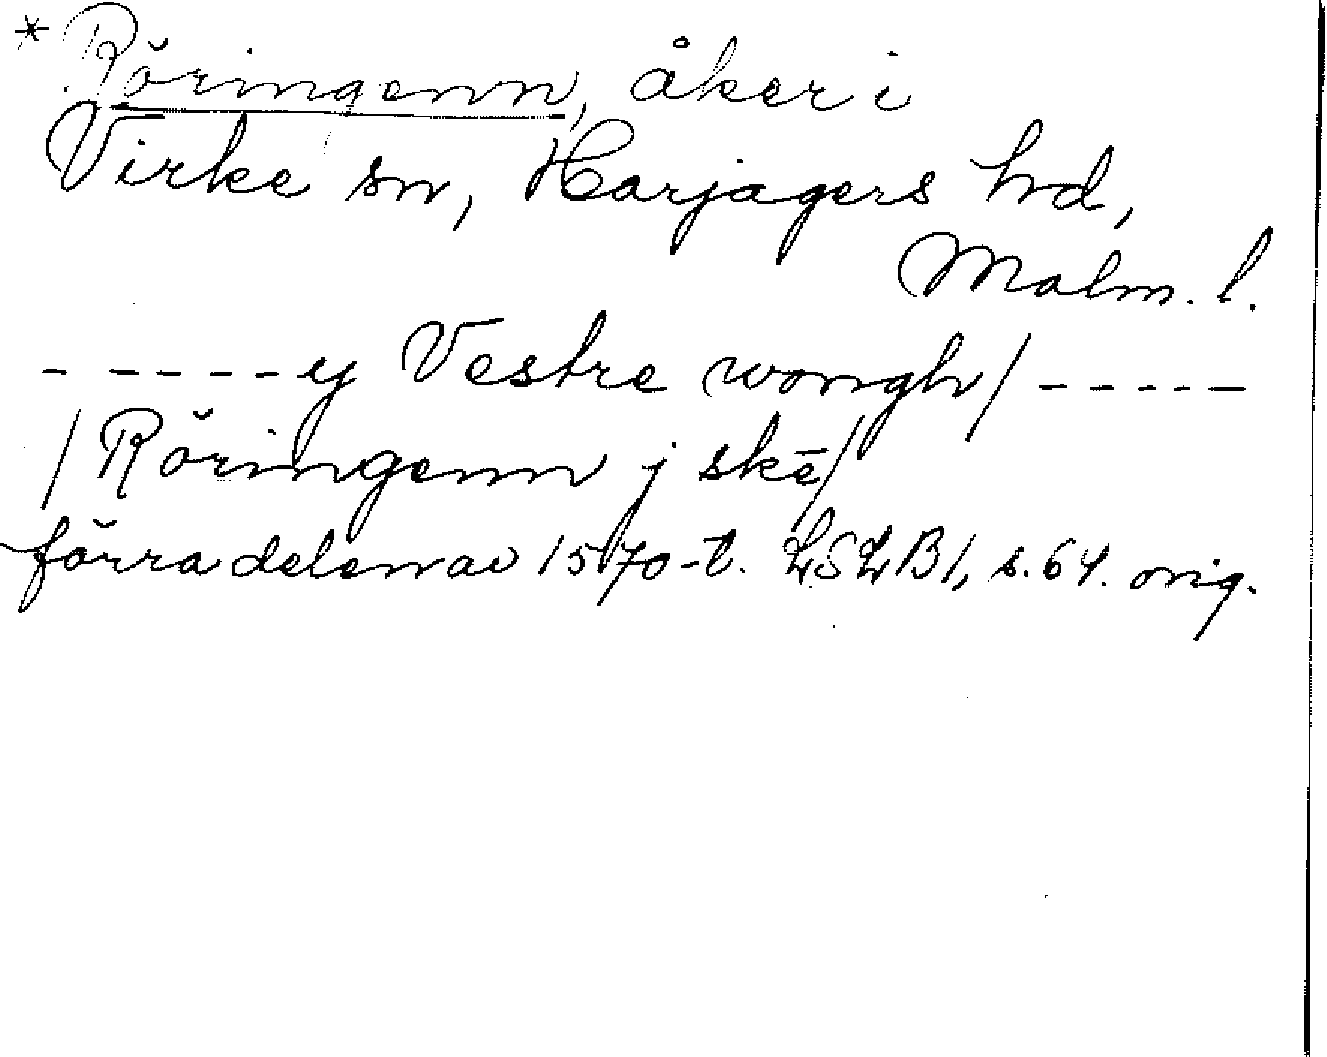 * Röringenn, åker i
Virke sn, Harjagers hd,
Malm. l.
- - - - - y Vestre wongh/ - - - - -
/Röringenn j skē/
förra delen av 1570-t. LSLB1, s. 64. orig.